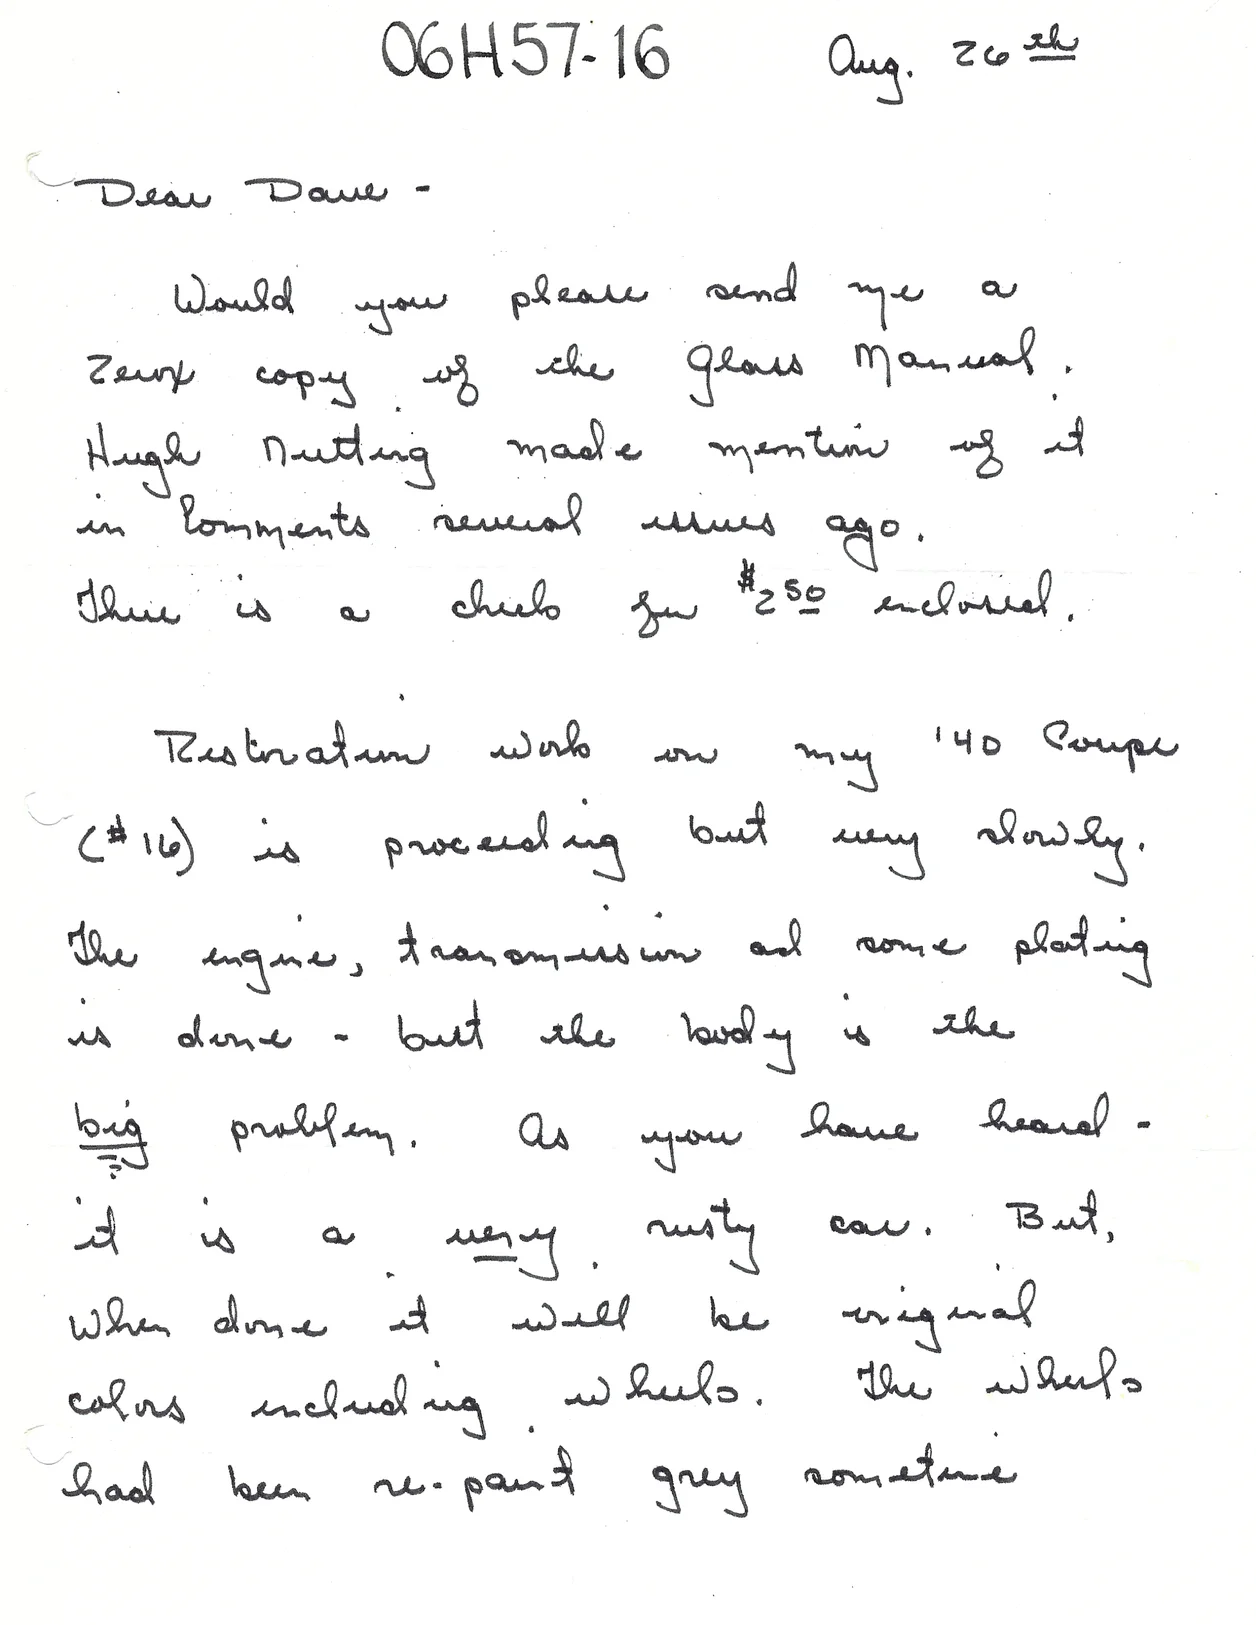 06H57-16 Aug. 26th
Dear Dave -
Would you please send me a
Zerox copy of the Glass Manual.
Hugh Nutting made mention of it
in Comments several issues ago.
There is a check for $2 50 enclosed.
Restoration work on my '40 Coupe
(#16) is proceeding but very slowly.
The engine, transmission ad some plating
is done - but the body is the
big problem. As you have heard -
it is a very rusty car. But,
when done it will be original
colors including wheels. The wheels
had been re-paint grey sometime